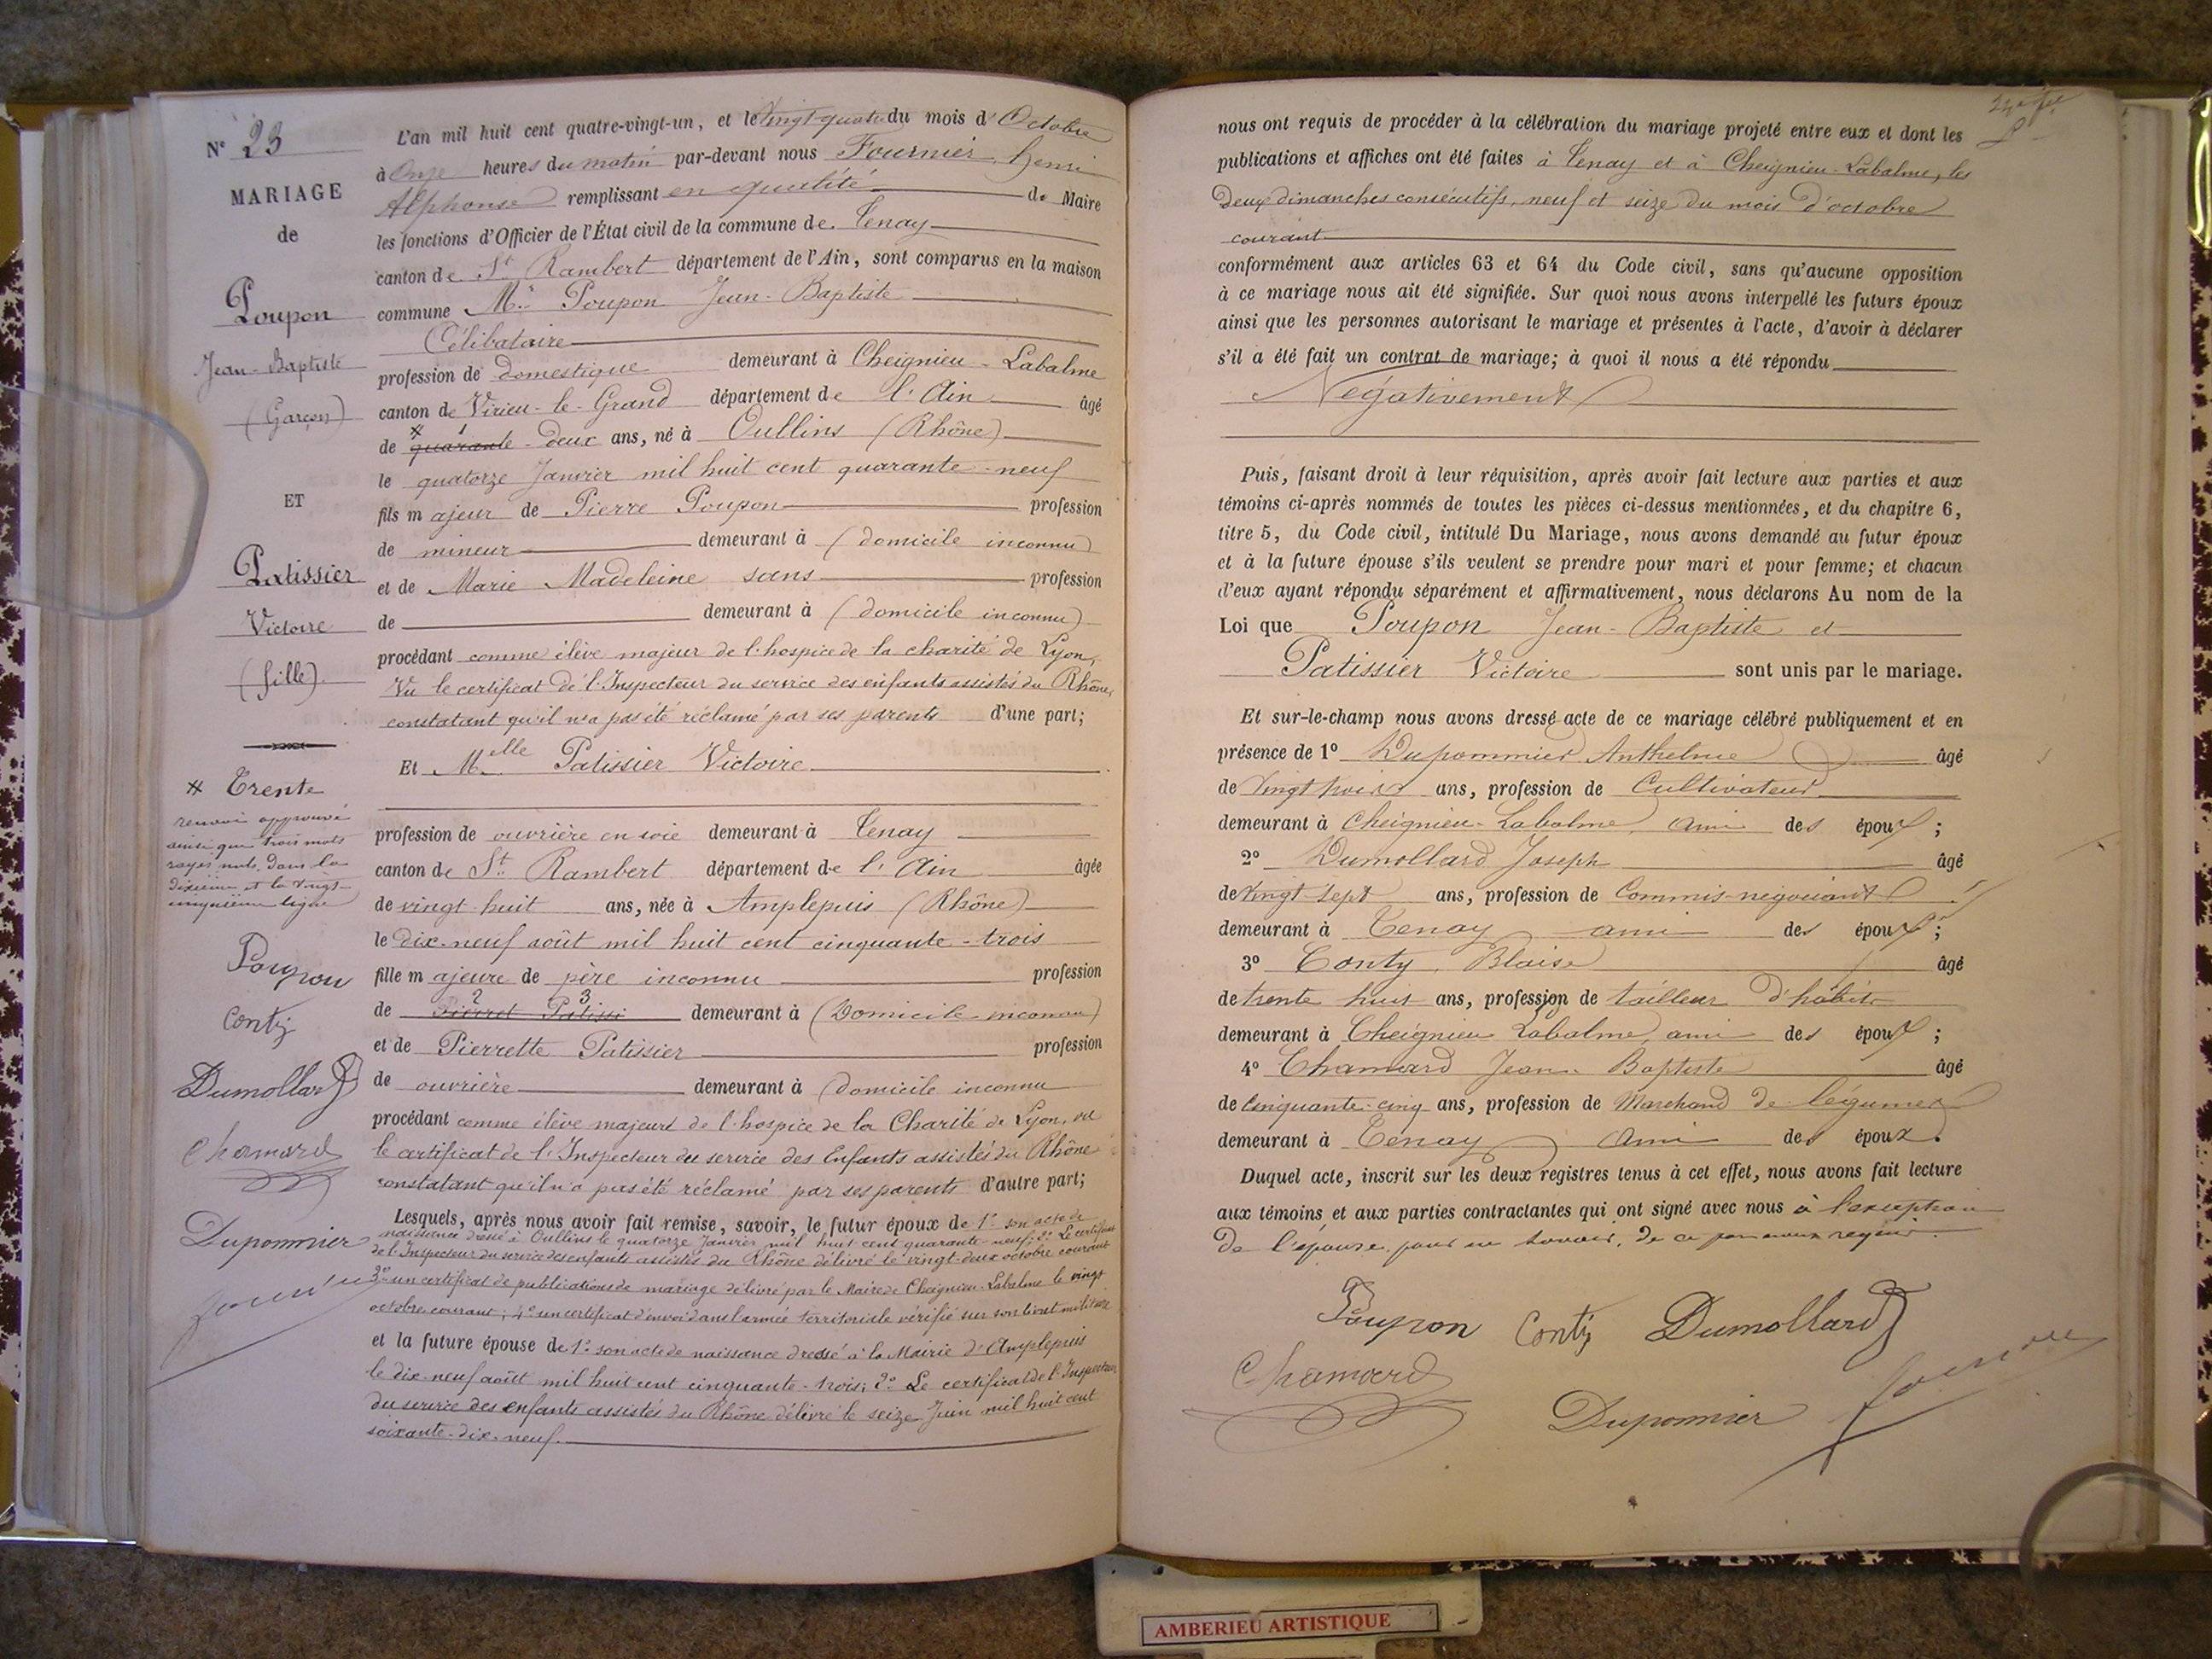 N° 23
MARIAGE
de
Poupon
Jean-Baptiste
(Garçon)
ET
Patissier
Victoire
(fille).
* Trente
renvoi approuvé
ainsi que trois mots
rayés nuls dans la
dixième et la vingt-
cinquième ligne
Poupon
Conty
Dumollard
Chamard
Dupommier
L'an mil huit cent quatre-vingt-un, et le vingt-quatre du mois d'Octobre
à Onze heures du matin par-devant nous Fournier, henri
Alphonse remplissant en qualité de Maire
les fonctions d'Officier de l'État civil de la commune de Tenay
canton de St Rambert département de l'Ain, sont comparus en la maison
commune Mr. Poupon Jean-Baptiste
Célibataire
profession de domestique demeurant à Cheignieu-Labalme
canton de Virieu-le-Grand département de l'Ain âgé
de * quarante 1 -deux ans, né à Oullins (Rhône)
le quatorze Janvier mil huit cent quarante-neuf
fils majeur de Pierre Poupon profession
de mineur demeurant à (domicile inconnu)
et de Marie Madeleine sans profession
de demeurant à (domicile inconnu)
procédant comme élève majeur de l'hospice de la charité de Lyon,
Vu le certificat de l'Inspecteur du service des enfants assistés du Rhône,
constatant qu'il n'a pas été réclamé par ses parents d'une part;
Et Melle Patissier Victoire
profession de ouvrière en soie demeurant à Tenay
canton de St. Rambert département de l'Ain âgée
de vingt-huit ans, née à Amplepuis (Rhône)
le dix-neuf août mil huit cent cinquante-trois
fille majeure de père inconnu profession
de 2 3 Pierret Patissi demeurant à (Domicile inconnu)
et de Pierrette Patissier profession
de ouvrière demeurant à (domicile inconnu
procédant comme élève majeure de l'hospice de la Charité de Lyon, vu
le certificat de l'Inspecteur du service des Enfants assistés du Rhône
constatant qu'il n'a pas été réclamé par ses parents d'autre part;
Lesquels, après nous avoir fait remise, savoir, le futur époux de 1° son acte de
naissance dressé à Oullins le quatorze Janvier mil huit cent quarante-neuf; 2° Le certificat
de l'Inspecteur du service des enfants assistés du Rhône délivré le vingt-deux octobre courant
3° un certificat de publications de mariage délivré par le Maire de Cheignieu-Labalme le vingt
octobre courant; 4° un certificat d'envoi dans l'armée territoriale vérifié sur son livret militaire
et la future épouse de 1° son acte de naissance dressé à la Mairie d'Amplepuis
le dix-neuf août mil huit cent cinquante-trois; 2° Le certificat de l'Inspecteur
du service des enfants assistés du Rhône délivré le seize Juin mil huit cent
soixante-dix-neuf.
nous ont requis de procéder à la célébration du mariage projeté entre eux et dont les
publications et affiches ont été faites à Tenay et à Cheignieu-Labalme, les
Deux dimanches consécutifs, neuf et seize du mois d'octobre
courant
conformément aux articles 63 et 64 du Code civil, sans qu'aucune opposition
à ce mariage nous ait été signifiée. Sur quoi nous avons interpellé les futurs époux
ainsi que les personnes autorisant le mariage et présentes à l'acte, d'avoir à déclarer
s'il a été fait un contrat de mariage; à quoi il nous a été répondu
Négativement
Puis, faisant droit à leur réquisition, après avoir fait lecture aux parties et aux
témoins ci-après nommés de toutes les pièces ci-dessus mentionnées, et du chapitre 6,
titre 5, du Code civil, intitulé Du Mariage, nous avons demandé au futur époux
et à la future épouse s'ils veulent se prendre pour mari et pour femme; et chacun
d'eux ayant répondu séparément et affirmativement, nous déclarons Au nom de la
Loi que Poupon Jean-Baptiste et
Patissier Victoire sont unis par le mariage.
Et sur-le-champ nous avons dressé acte de ce mariage célébré publiquement et en
présence de 1° Dupommier Anthelme âgé
de Vingt trois ans, profession de Cultivateur
demeurant à Cheignieu-Labalme, ami des époux;
2° Dumollard Joseph âgé
de Vingt-sept ans, profession de Commis-négociant
demeurant à Tenay ami des époux;
3° Conty, Blaise âgé
de trente huit ans, profession de tailleur d'habits
demeurant à Cheignieu Labalme, ami des époux;
4° Chamard Jean-Baptiste âgé
de Cinquante-cinq ans, profession de Marchand de légumes
demeurant à Tenay Ami des époux.
Duquel acte, inscrit sur les deux registres tenus à cet effet, nous avons fait lecture
aux témoins et aux parties contractantes qui ont signé avec nous à l'exception
De l'épouse, pour ne savoir, de ce par nous requis.
Poupon Conty Dumollard
Chamard
Dupommier
AMBERIEU ARTISTIQUE